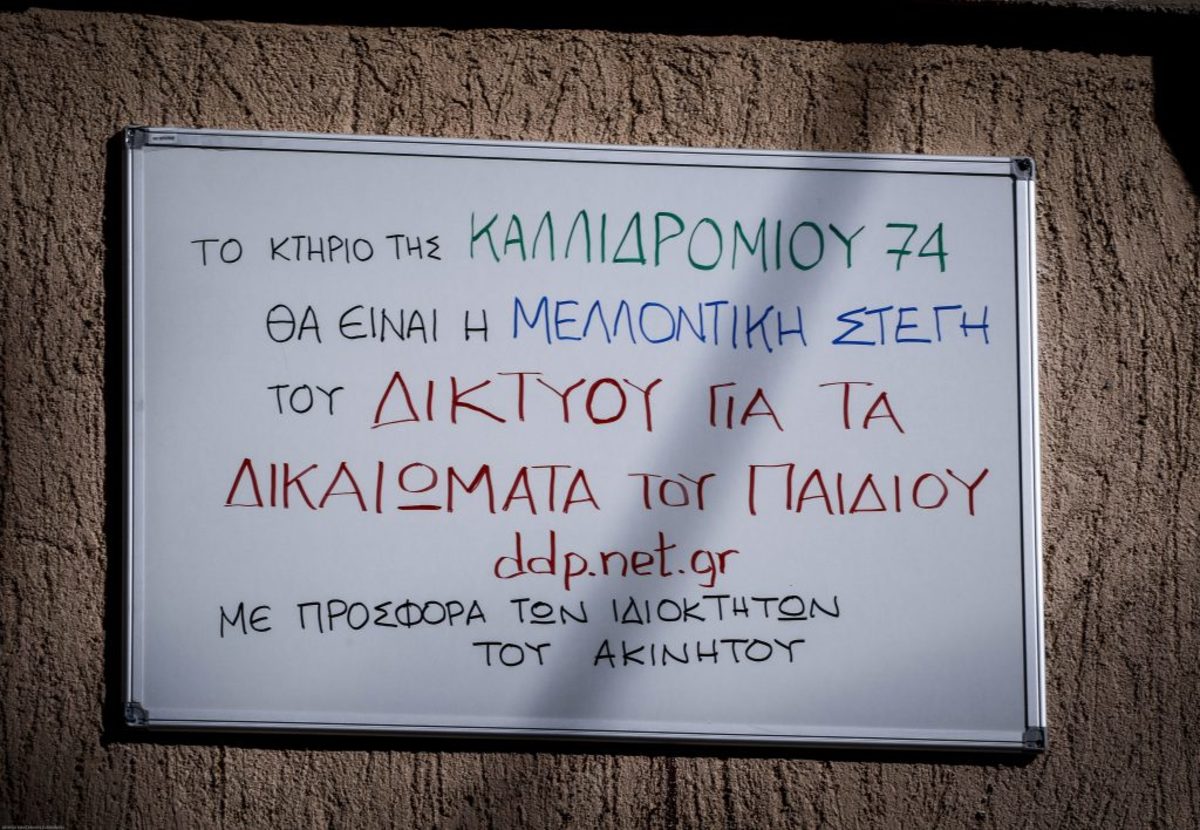 ΤΟ ΚΤΗΡΙΟ ΤΗΣ ΚΑΛΛΙΔΡΟΜΙΟΥ 74
ΘΑ ΕΙΝΑΙ Η ΜΕΛΛΟΝΤΙΚΗ ΣΤΕΓΗ
ΤΟΥ ΔΙΚΤΥΟΥ ΓΙΑ ΤΑ
ΔΙΚΑΙΩΜΑΤΑ ΤΟΥ ΠΑΙΔΙΟΥ
ddp.net.gr
ΜΕ ΠΡΟΣΦΟΡΑ ΤΩΝ ΙΔΙΟΚΤΗΤΩΝ
ΤΟΥ ΑΚΙΝΗΤΟΥ